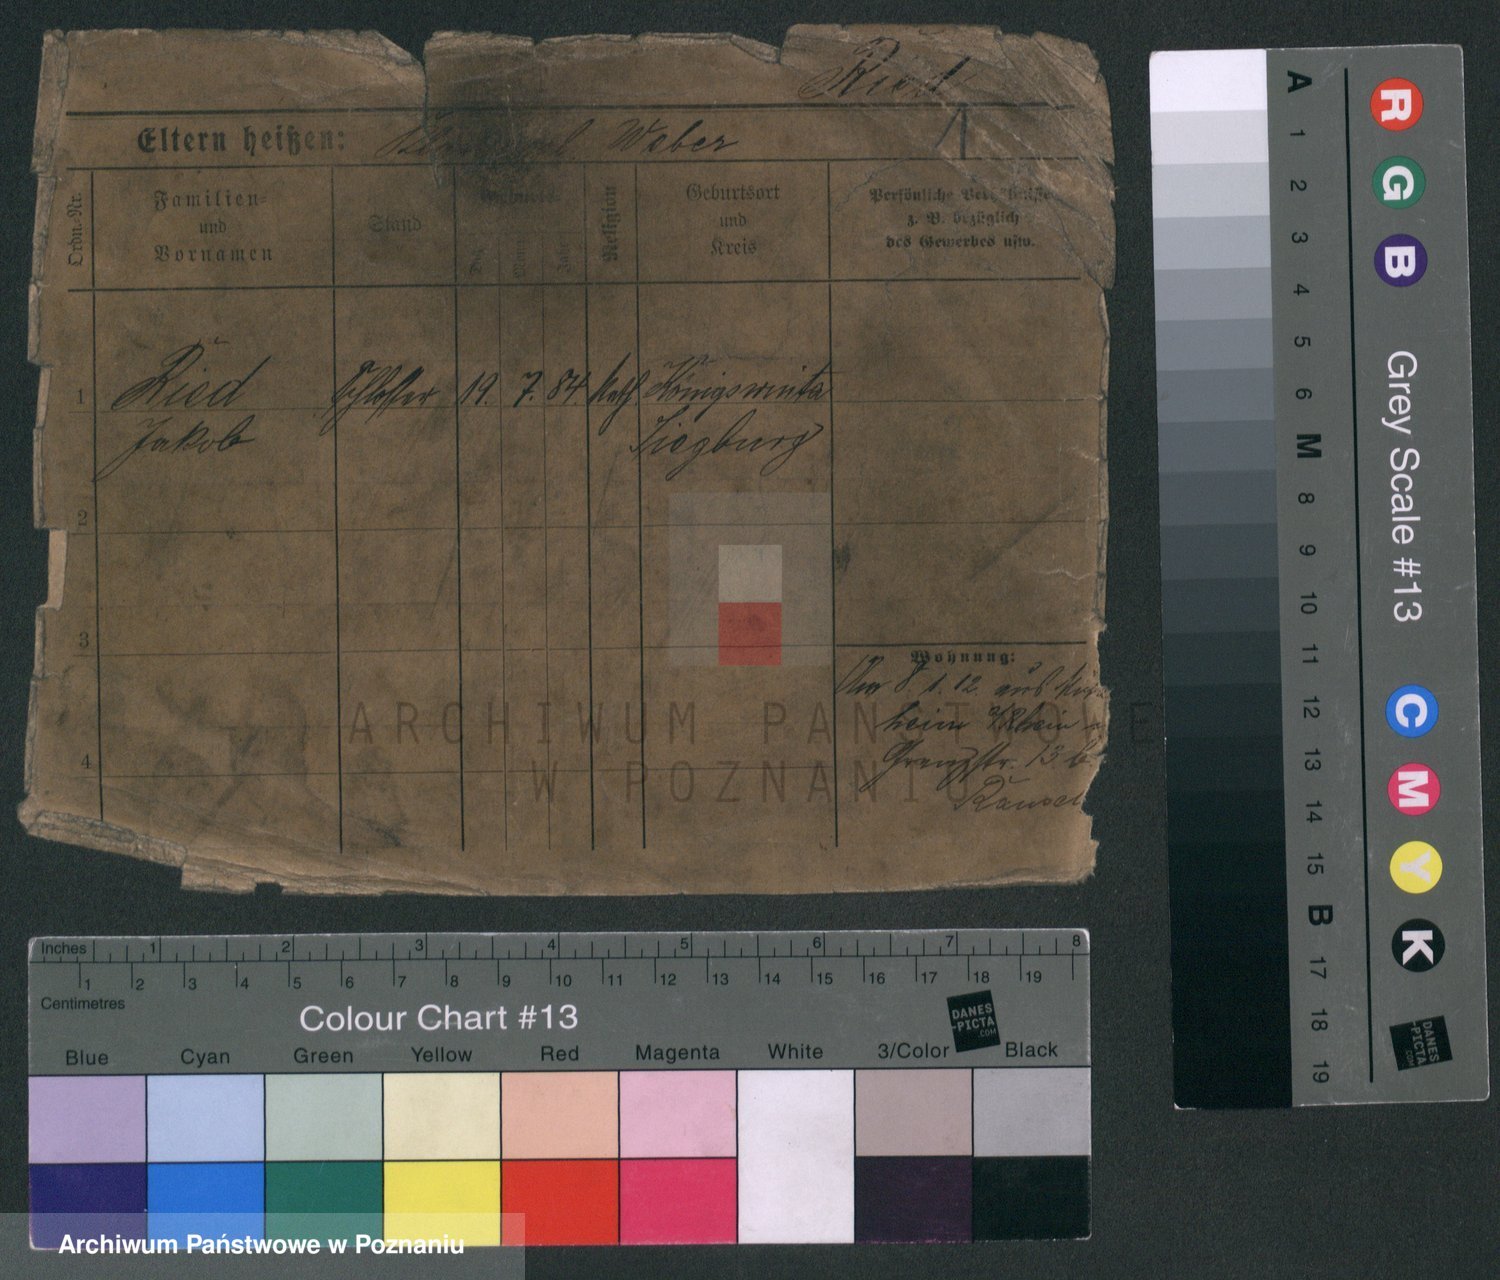 Ried
1
Eltern heißen: Weber
Ordn.-Nr.
Familien-
und
Vornamen
Stand
Geburts-
Tag
Mon.
Jahr
Religion
Geburtsort
und
Kreis
Persönliche Verhältnisse
z. B. bezüglich
des Gewerbes usw.
1
Ried Schlosser 19. 7. 84 kath Königswinter
Jakob Siegburg
2
3
4
Wohnung:
8. 1. 12. aus
heim Rhein
Grenzstr. 13 b.
ARCHIWUM PAŃSTWOWE
W POZNANIU
Inches 1 2 3 4 5 6 7 8
1 2 3 4 5 6 7 8 9 10 11 12 13 14 15 16 17 18 19
Centimetres
Colour Chart #13
DANES
-PICTA
.COM
Blue Cyan Green Yellow Red Magenta White 3/Color Black
Grey Scale #13
A 1 2 3 4 5 6 M 8 9 10 11 12 13 14 15 B 17 18 19
R G B C M Y K
DANES
-PICTA
.COM
Archiwum Państwowe w Poznaniu